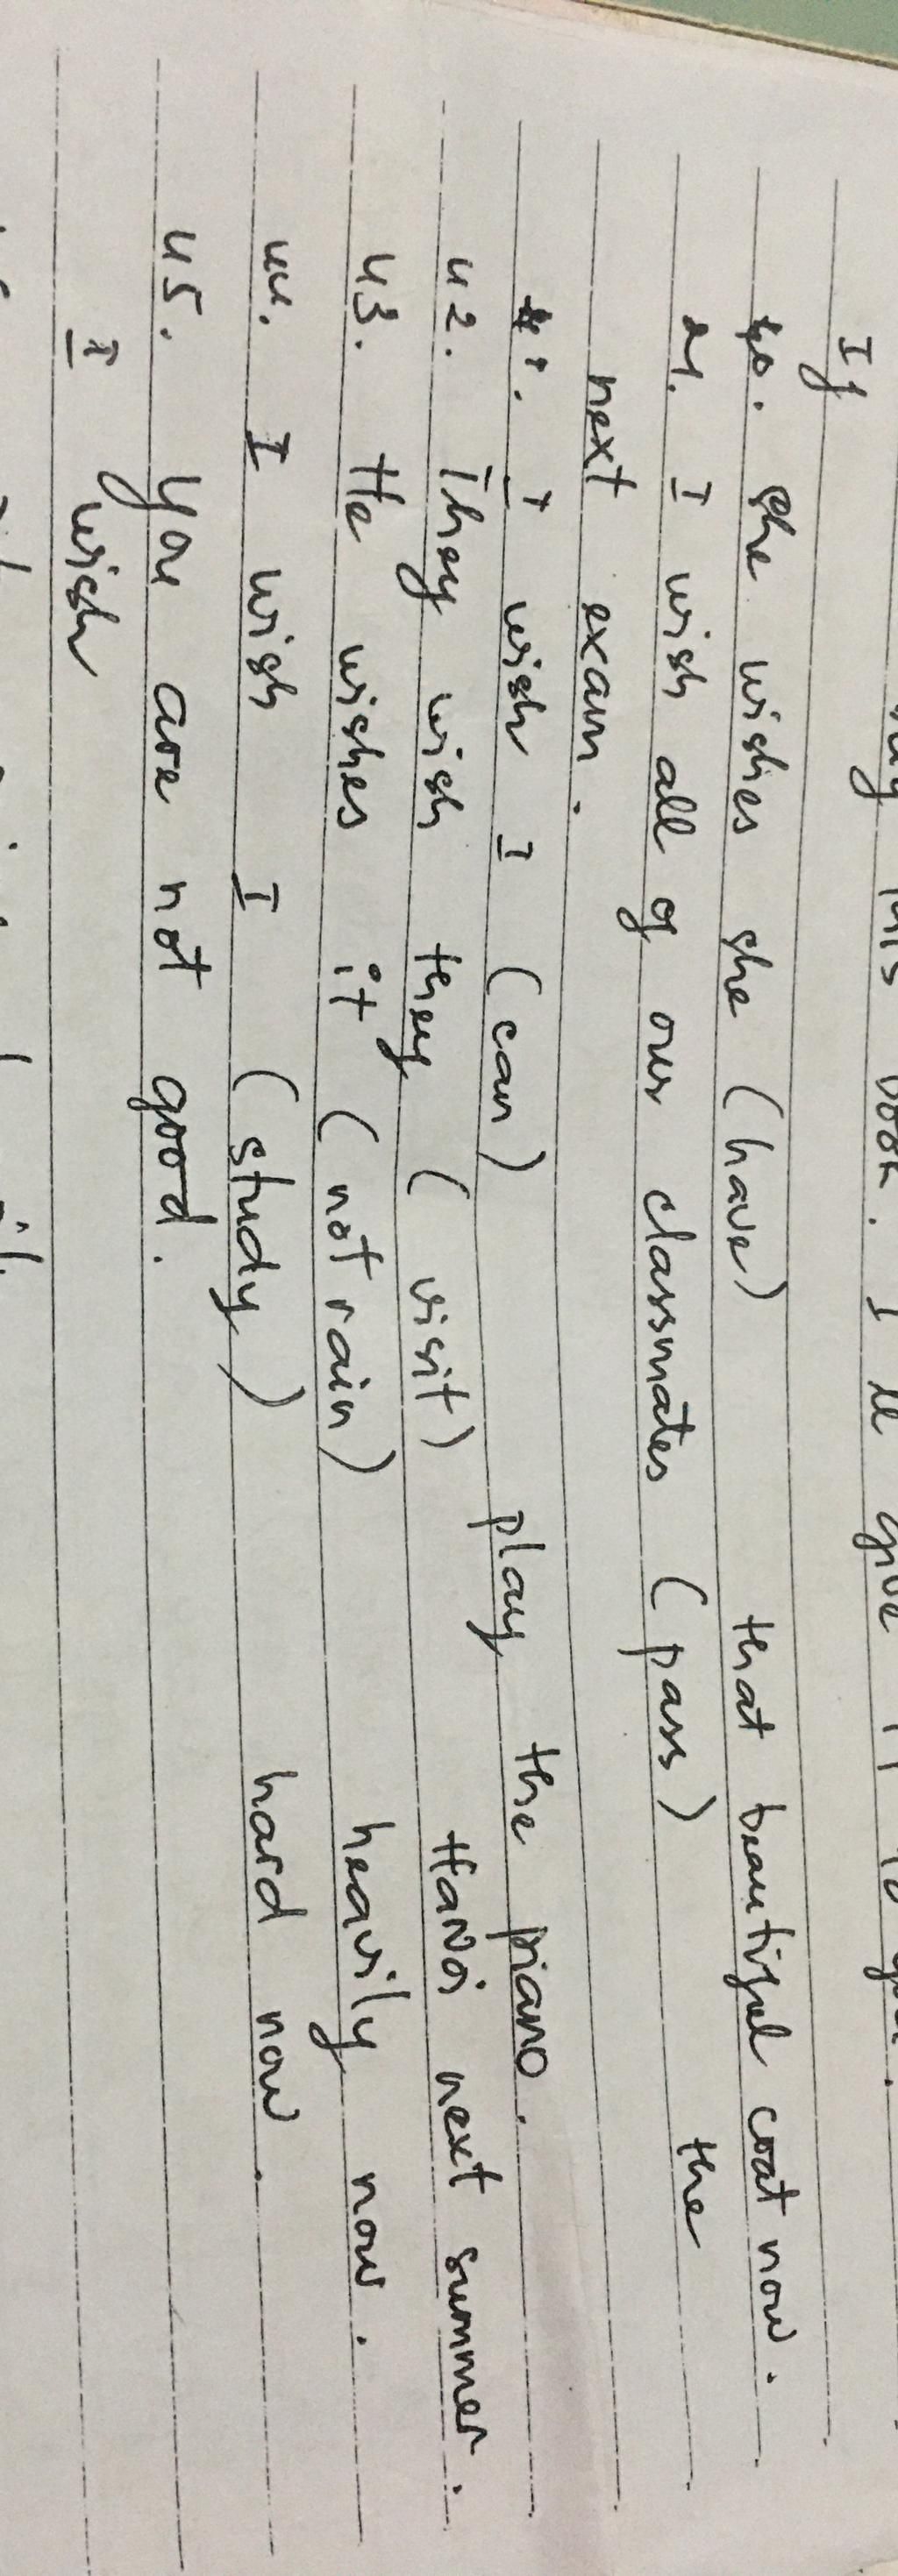 this book. I'll give it to you.
If
40. She wishes she (have) that beautiful coat now.
41. I wish all of our classmates (pass) the
next exam.
I wish I (can) play the piano.
42. They wish they (visit) HaNoi next summer.
43. He wishes it (not rain) heavily now.
44. I wish I (study) hard now.
45. You are not good.
I wish